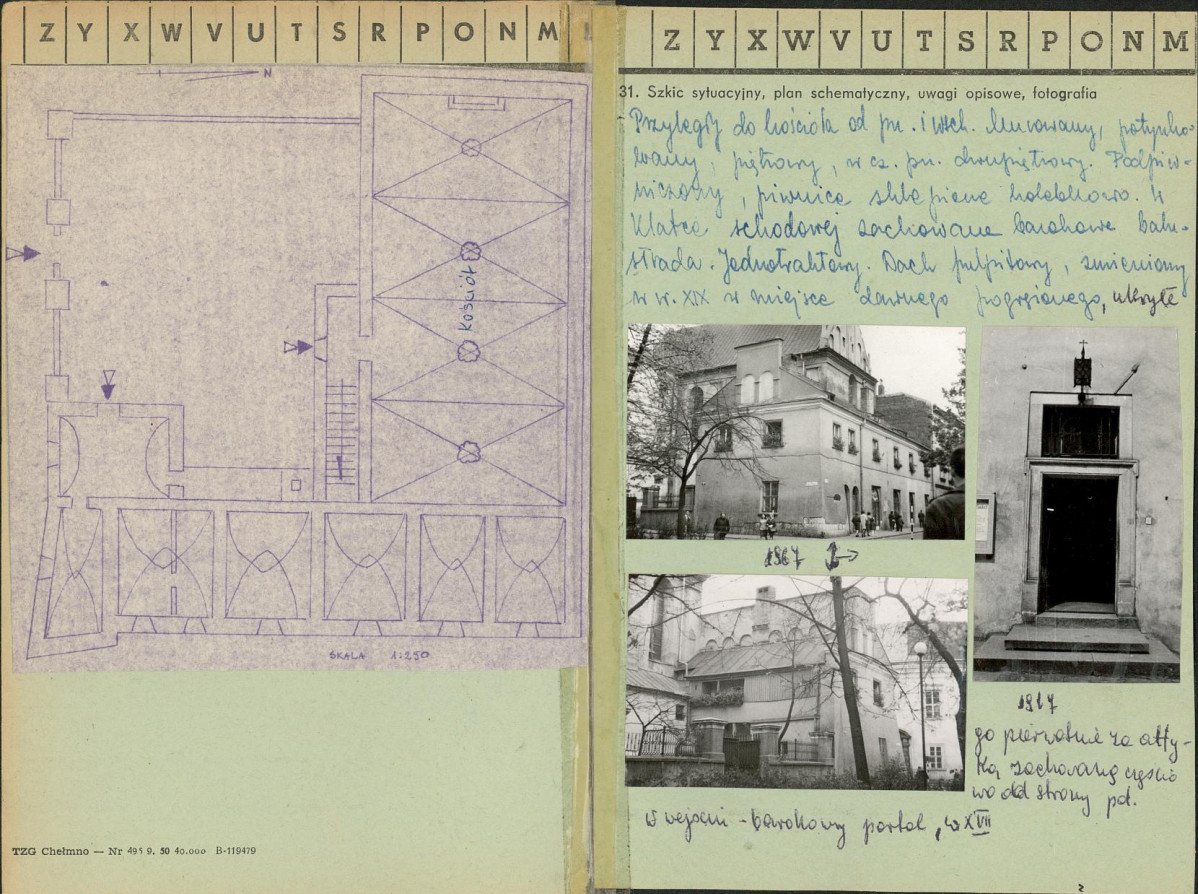 Z Y X W V U T S R P O N M
N
Kościół
SKALA 1:250
TZG Chełmno — Nr 495 9. 50 40.000 B-119479
Z Y X W V U T S R P O N M
31. Szkic sytuacyjny, plan schematyczny, uwagi opisowe, fotografia
Przyległy do kościoła od pn. i wsch. Murowany, potynko-
wany, piętrowy, w cz. pn. dwupiętrowy. Podpiw-
niczony, piwnice sklepione kolebkowo. W
klatce schodowej zachowane barokowe balu-
strada. Jednotraktowy. Dach pulpitowy, zmieniony
w w. XIX w miejsce dawnego pogrążonego, ukryte
1967
1967
go pierwotnie za atty-
ką zachowaną częścio
wo od strony pd.
W wejściu - barokowy portal, w XVII